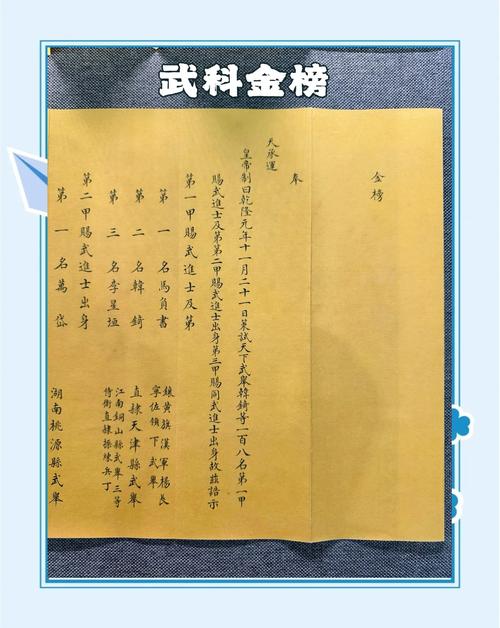 武科金榜
金榜
奉
天承運
皇帝制曰乾隆元年十一月二十一日策試天下武舉韓錡等一百八名第一甲
賜武進士及第第二甲賜武進士出身第三甲賜同武進士出身故茲誥示
第一甲賜武進士及第
第一名馬負書 鑲黃旗漢軍楊長寧佐領下武舉
第二名韓錡 直隸天津縣武舉
第三名李星垣 江南銅山縣武舉三等侍衛直隸孫煉兵丁
第二甲賜武進士出身
第一名萬岱 湖南桃源縣武舉